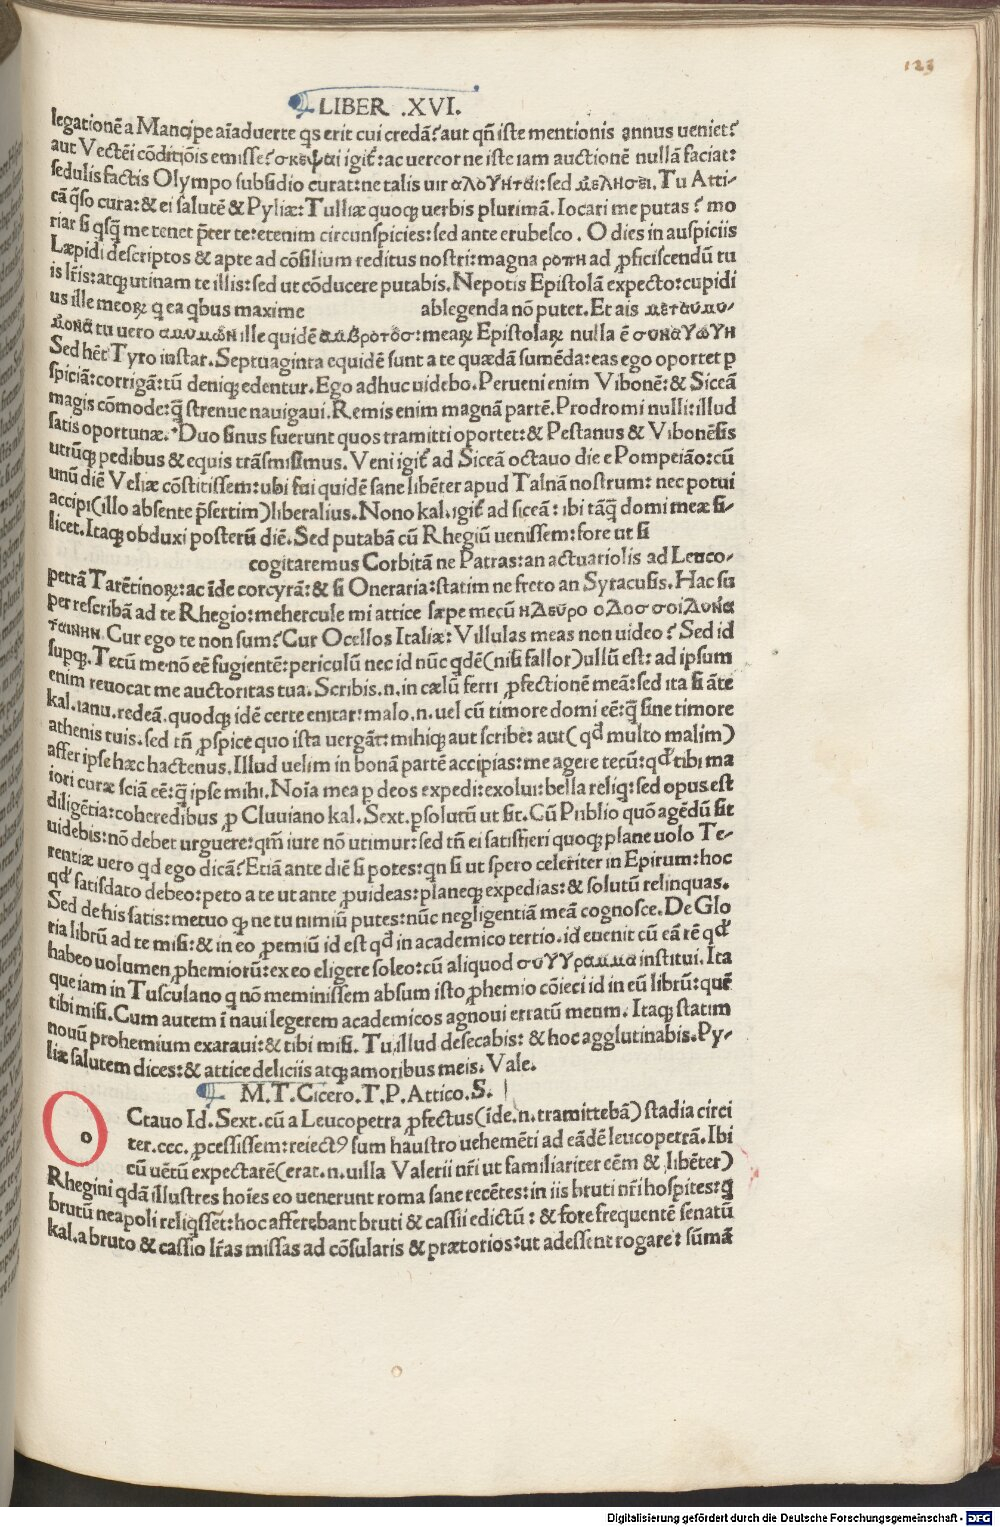 123
LIBER .XVI.
legationē a Mancipe aīaduerte qs erit cui credā? aut qñ iste mentionis annus ueniet?
aut Vectēi cōditiōis emisse? σκεψαι igiť: ac uercor ne iste iam auctionē nullā faciat:
sedulis factis Olympo subsidio curat: ne talis uir αλογηται: sed μελησει. Tu Atti-
cā q̄so cura: & ei salutē & Pyliæ: Tulliæ quoqꝫ uerbis plurimā. Iocari me putas? mo
riar si qsq̄ me tenet p̄ter te: etenim circunspicies: sed ante erubesco. O dies in auspiciis
Læpidi descriptos & apte ad cōsilium reditus nostri: magna ροπη ad ꝓficiscendū tu
is lr̄is: atqꝫ utinam te illis: sed ut cōducere putabis. Nepotis Epistolā expecto: cupidi
us ille meoꝝ q ea qbus maxime ablegenda nō putet. Et ais
tu uero ille quidē meaꝝ Epistolaꝝ nulla ē συναγωγη
Sed hēt Tyro instar. Septuaginta equidē sunt a te quædā sumēda: eas ego oportet p
spiciā: corrigā: tū deniqꝫ edentur. Ego adhuc uidebo. Perueni enim Vibonē: & Siceā
magis cōmode: q̄ strenue nauigaui. Remis enim magnā partē. Prodromi nulli: illud
satis oportunæ. Duo sinus fuerunt quos tramitti oportet: & Pestanus & Vibonēsis
utrūqꝫ pedibus & equis trāsmisimus. Veni igiť ad Siceā octauo die e Pompeiāo: cū
unū diē Veliæ cōstitissem: ubi fui quidē sane libēter apud Talnā nostrum: nec potui
accipi (illo absente p̄sertim) liberalius. Nono kal. igiť ad siceā: ibi tāq̄ domi meæ si-
licet. Itaqꝫ obduxi posterū diē. Sed putabā cū Rhegiū uenissem: fore ut si
cogitaremus Corbitā ne Patras: an actuariolis ad Leuco-
petrā Tarētinoꝝ: ac īde corcyrā: & si Oneraria: statim ne freto an Syracusis. Hac su
per rescribā ad te Rhegio: mehercule mi attice sæpe mecū
Cur ego te non sum? Cur Ocellos Italiæ: Villulas meas non uideo? Sed id
supqꝫ. Tecū me nō eē fugientē: periculū nec id nūc qdē (nisi fallor) ullū est: ad ipsum
enim reuocat me auctoritas tua. Scribis .n. in cælū ferri ꝓfectionē meā: sed ita si āte
kal. ianu. redeā. quodqꝫ idē certe enitar: malo .n. uel cū timore domi eē: q̄ sine timore
athenis tuis. sed tñ ꝓspice quo ista uergāt: mihiqꝫ aut scribe: aut (qd multo malim)
affer ipse hæc hactenus. Illud uelim in bonā partē accipias: me agere tecū: qd tibi ma
iori curæ sciā eē: q̄ ipse mihi. Noīa mea p deos expedi: exolui: bella reliq: sed opus est
diligētia: coheredibus ꝓ Cluuiano kal. Sext. psolutū ut sit. Cū Publio quō agēdū sit
uidebis: nō debet urguere: qm̄ iure nō utimur: sed tñ ei satisfieri quoqꝫ plane uolo Te-
rentiæ uero qd ego dicā? Etiā ante diē si potes: qn si ut spero celeriter in Epirum: hoc
qd satisdato debeo: peto a te ut ante ꝓuideas: planeqꝫ expedias: & solutū relinquas.
Sed de his satis: metuo qꝫ ne tu nimiū putes: nūc negligentiā meā cognosce. De Glo
ria librū ad te misi: & in eo ꝓemiū id est qd in academico tertio. id euenit cū eā rē qd
habeo uolumen ꝓhemiorū: ex eo eligere soleo: cū aliquod συγγραμμα institui. Ita
que iam in Tusculano q nō meminissem absum isto ꝓhemio cōieci id in eū librū: quē
tibi misi. Cum autem ī naui legerem academicos agnoui erratū meum. Itaqꝫ statim
nouū prohemium exaraui: & tibi misi. Tu illud desecabis: & hoc agglutinabis. Py-
liæ salutem dices: & attice deliciis atqꝫ amoribus meis. Vale.
M.T.Cicero.T.P.Attico.S.
O
o Ctauo Id. Sext. cū a Leucopetra ꝓfectus (īde .n. tramittebā) stadia circi
ter .ccc. ꝓcessissem: reiectꝰ sum haustro uehemēti ad eādē leucopetrā. Ibi
cū uētū expectarē (erat .n. uilla Valerii nr̄i ut familiariter eēm & libēter)
Rhegini qdā illustres hoīes eo uenerunt roma sane recētes: in iis bruti nr̄i hospites: q
brutū neapoli reliqssēt: hoc afferebant bruti & cassii edictū: & fore frequentē senatū
kal. a bruto & cassio lr̄as missas ad cōsularis & prætorios: ut adessent rogare: sūmā
Digitalisierung gefördert durch die Deutsche Forschungsgemeinschaft - DFG